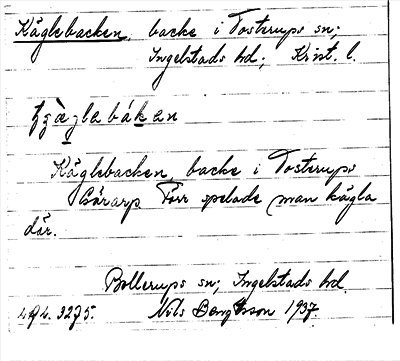 Käglebacken, backe i Tosterups sn;
Ingelstads hd; Krist. l.
Käglebacken, backe i Tosterups
Förr spelade man kägla
där.
Bollerups sn; Ingelstads hd.
3275. Nils Bengtsson 1937.